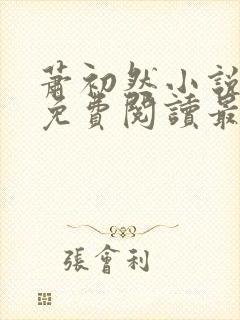 蕭初然小說
免費閱讀最
張會利